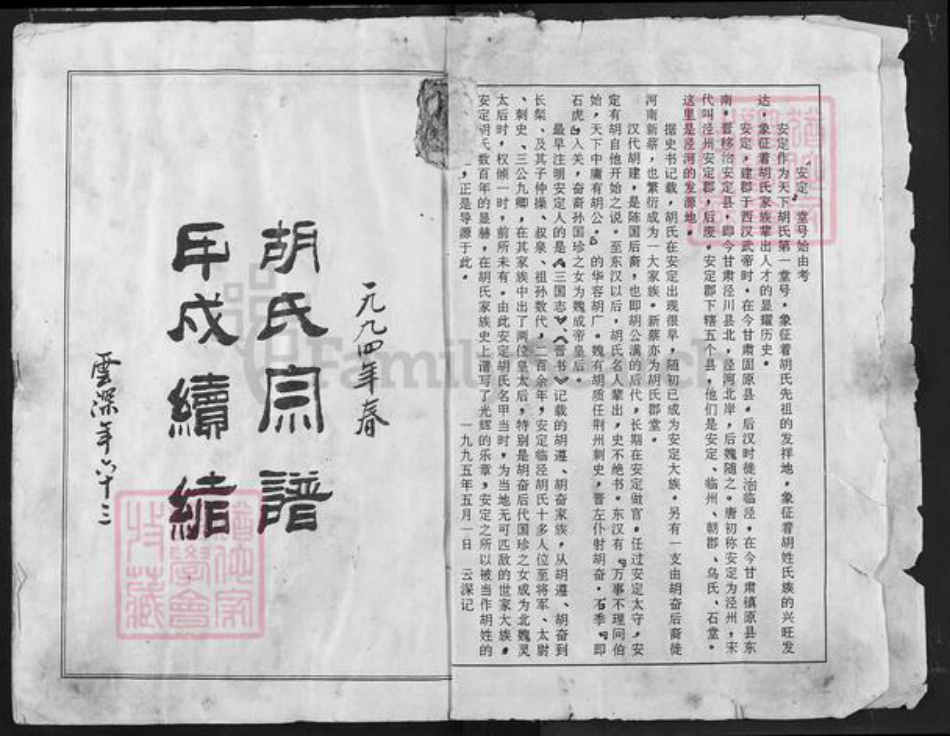 “安定”堂号始由考
安定作为天下胡氏第一堂号，象征着胡氏先祖的发祥地，象征着胡姓氏族的兴旺发
达，象征着胡氏家族辈出人才的显耀历史。
安定，建郡于西汉武帝时，在今甘肃固原县，后汉时徙治临泾，在今甘肃镇原县东
南，晋移治安定县，即今甘肃泾川县北，泾河北岸，后魏随之。唐初称安定为泾州，宋
代叫泾州安定郡，后废。安定郡下辖五个县，他们是安定、临州、朝郡、乌氏、石堂。
这里是泾河的发源地。
据史书记载，胡氏在安定出现很早，随初已成为安定大族。另有一支由胡奋后裔徙
河南新蔡，也繁衍成为一大家族。新蔡亦为胡氏郡堂。
汉代胡建，是陈国后裔，也即胡公满的后代，长期在安定做官，任过安定太守，安
定有胡自他开始之说。至东汉以后，胡氏名人辈出，史不绝书。东汉有“万事不理问伯
始，天下中庸有胡公。”的华容胡广。魏有胡质任荆州刺史，晋左仆射胡奋。石季“即
石虎”人关，奋裔孙国珍之女为魏成帝皇后。
最早注明安定人的是《三国志》、《晋书》记载的胡遵、胡奋家族，从胡遵、胡奋到
长粲、及其子仲操、叔泉、祖孙数代，二百余年，安定临泾胡氏十多人位至将军、太尉
、刺史、三公九卿，在其家族中出了两位皇太后，特别是胡奋后代国珍之女成为北魏灵
太后时，权倾一时，前所未有。由此安定胡氏名甲当时，为当地无可匹敌的世家大族。
安定胡氏数百年的显赫，在胡氏家族史上谱写了光辉的乐章，安定之所以被当作胡姓的
，正是导源于此。
一九九五年五月一日 云深记
一九九四年春
胡氏宗譜
年成續結
雲深年六十三